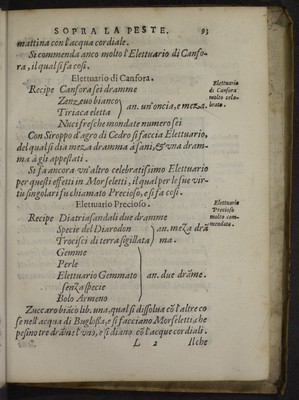 SOPRA LA PESTE. 93
mattina con l'acqua cordiale.
Si commenda anco molto l'Elettuario di Canfo-
ra, il qual si fa così.
Elettuario di Canfora.
Elettuario
di Canfora
molto cele-
brato.
Recipe Canfora sei dramme
Zenzeuo bianco
Tiriaca eletta
an. un'oncia, e meza.
Noci fresche mondate numero sei
Con Siroppo d'agro di Cedro si faccia Elettuario,
del qual si dia meza dramma à sani, & vna dram-
ma à gli appestati.
Si fa ancora vn'altro celebratissimo Elettuario
per questi effetti in Morselletti, il qual per le sue vir-
tù singolari fu chiamato Precioso, e si fa così.
Elettuario Precioso.
Elettuario
Precioso
molto com-
mendato.
Recipe Diatriasandali due dramme
Specie del Diarodon
Trocisci di terra sigillata
an. meza drā
ma.
Gemme
Perle
Elettuario Gemmato
senza specie
Bolo Armeno
an. due drāme.
Zuccaro biāco lib. una, qual si dissolua cō l'altre co
se nell'acqua di Buglossa, e si facciano Morselletti, che
pesino tre drāme l'vno, e si diano cō l'acque cordiali.
L 2 Ilche